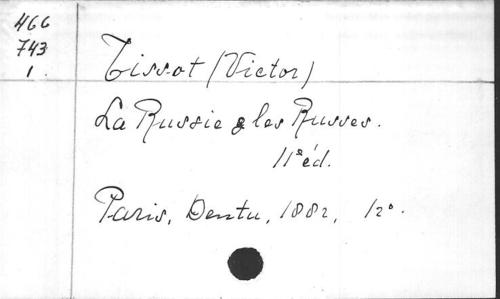 466
743
1.
Tissot (Victor)
La Russie & les Russes.
11e éd.
Paris, Dentu, 1882, 12°.